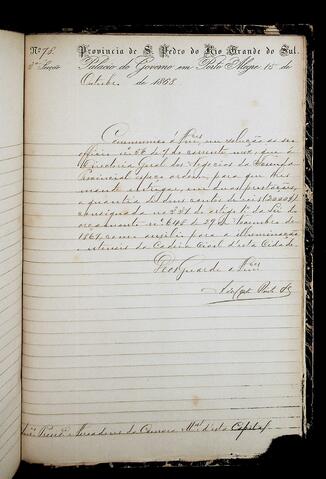 Nº 75. Provincia de S. Pedro do Rio Grande do Sul.
2ª Secção Palacio do Governo em Porto Alegre 15 de
Outubro de 1868.
Communico á Vmces em solução ao seu
officio nº 56 de 7 do corrente, que
Directoria Geral dos Negocios da Fazenda
Provincial expeço ordem, para que lhes
mande entregar, em duas prestações,
a quantia de dous contos de reis (2:000$)
consignada no § 31 do artigo 1º da Lei do
orçamento nº 646 de 29 de
1867, como auxilio para a illuminação
externa da Cadeia Civil d'esta Cidade.
Deos Guarde a Vmces
Presidte e Vereadores da Camara Mal d'esta Capital